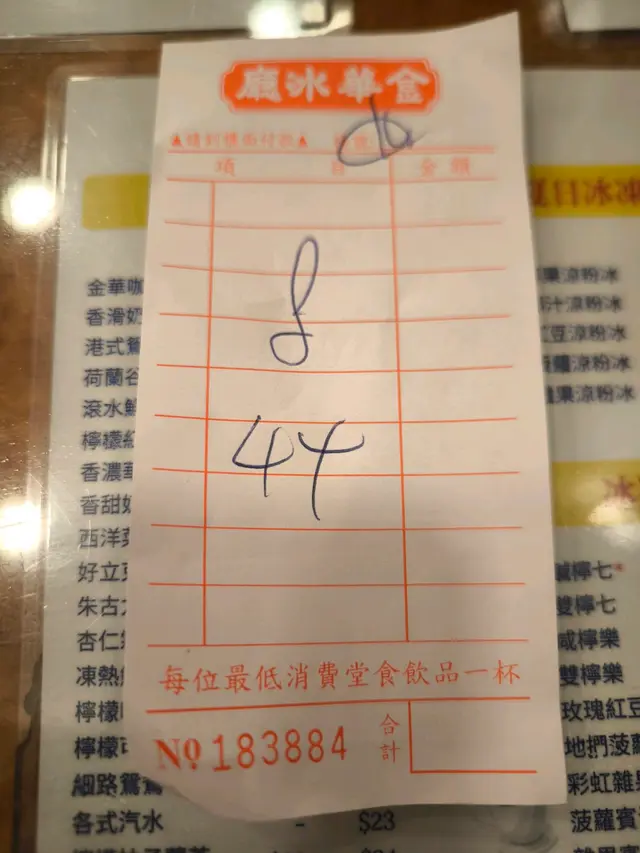 金華冰廳
▲請到櫃面付款▲
項 目 金額
8
44
每位最低消費堂食飲品一杯
合計
No 183884
金華咖
香滑奶
港式鴛
荷蘭谷
滾水
檸檬紅
香濃
香甜
西洋菜
好立克
朱古力
杏仁
凍熱
檸檬
檸檬
細路鴛鴦
各式汽水 - $23
夏日冰凍
果涼粉冰
汁涼粉冰
紅豆涼粉冰
涼粉冰
果涼粉冰
冰
鹹檸七*
雙檸七
咸檸樂
雙檸樂
玫瑰紅豆
地捫菠蘿
彩虹雜果
菠蘿賓